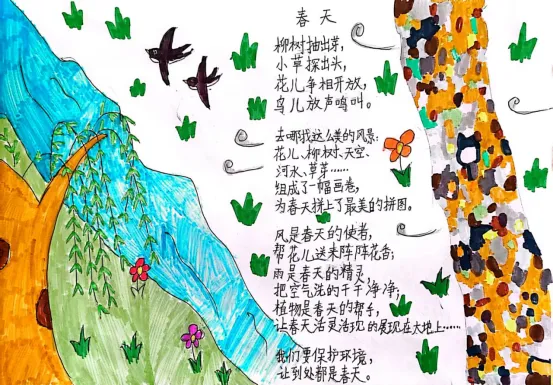 春天
柳树抽出芽，
小草探出头，
花儿争相开放，
鸟儿放声鸣叫。
去哪找这么美的风景：
花儿、柳树、天空、
河水、草芽……
组成了一幅画卷，
为春天拼上了最美的拼图。
风是春天的使者，
帮花儿送来阵阵花香；
雨是春天的精灵，
把空气洗的干干净净；
植物是春天的帮手，
让春天活灵活现的展现在大地上……
我们要保护环境，
让到处都是春天。